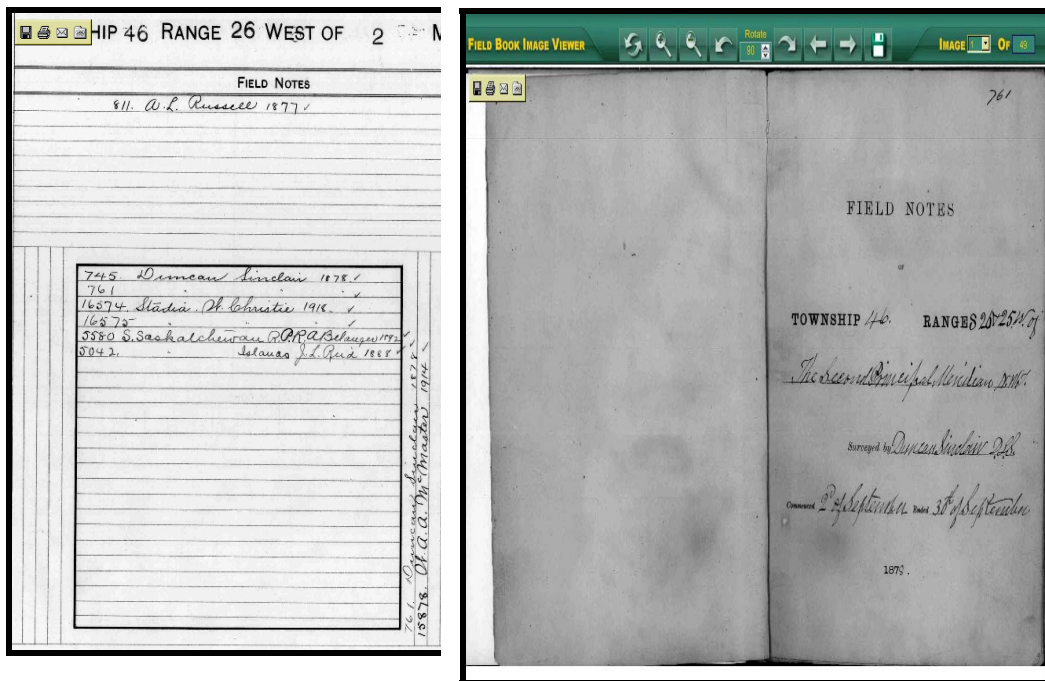 HIP 46 RANGE 26 WEST OF 2 M
FIELD NOTES
811. A.L. Russell 1877 ✓
745. Duncan Sinclair 1878 ✓
761 " " " ✓
16574. Stadia. W. Christie 1918. ✓
16575 " " " ✓
5580 S. Saskatchewan R. P.R.A. Belanger 1892 ✓
5042. " Islands J.L. Reid 1888 ✓
761. Duncan Sinclair 1878 ✓
15878. W.A.A. McMaster 1914 ✓
FIELD BOOK IMAGE VIEWER
Rotate
90
IMAGE 1 OF 49
761
FIELD NOTES
OF
TOWNSHIP 46. RANGES 26 & 25 W. of
The Second Principal Meridian, N.W.T.
Surveyed by Duncan Sinclair D.L.S.
Commenced 2d of September Ended 30th of September
1879.